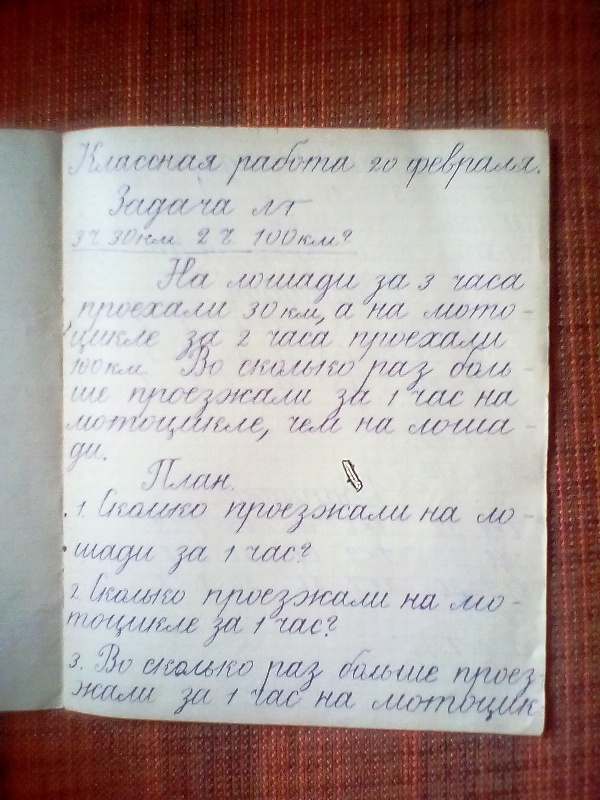 Классная работа 20 февраля.
Задача №
3 ч 30 км 2 ч. 100 км?
На лошади за 3 часа
проехали 30 км, а на мото-
цикле за 2 часа проехали
100 км. Во сколько раз боль-
ше проезжали за 1 час на
мотоцикле, чем на лоша-
ди.
План.
1. Сколько проезжали на ло-
шади за 1 час?
2. Сколько проезжали на мо-
тоцикле за 1 час?
3. Во сколько раз больше проез-
жали за 1 час на мотоцик